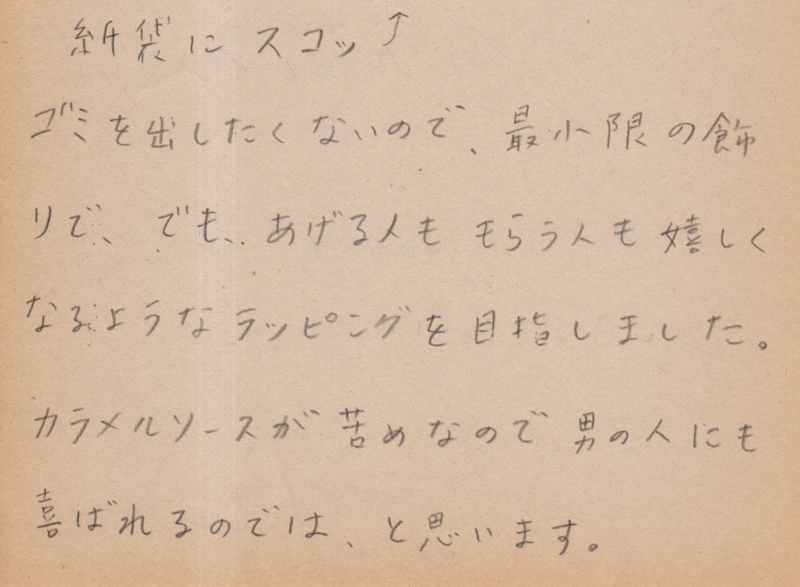 紙袋に スコッ↑
ゴミを出したくないので、最小限の飾
りで、でも、あげる人も もらう人も 嬉しく
なるようなラッピングを目指しました。
カラメルソースが 苦めなので 男の人にも
喜ばれるのでは、と思います。